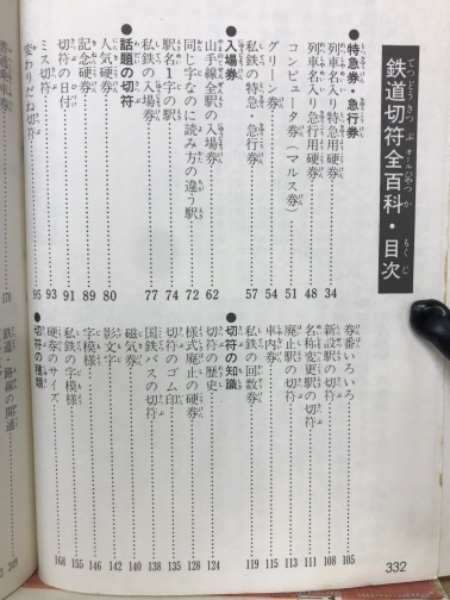 鉄道切符全百科・目次
てつどうきっぷオールひゃっか もくじ
●特急券・急行券
列車名入り特急用硬券……34
列車名入り急行用硬券……48
コンピュータ券(マルス券)……51
グリーン券……54
私鉄の特急・急行券……57
●入場券
山手線全駅の入場券……62
同じ字なのに読み方の違う駅……72
駅名1字の駅……74
私鉄の入場券……77
●話題の切符
人気硬券……80
記念硬券……89
切符の日付……91
ミス切符……93
変わりだね切符……95
券番いろいろ……105
新設駅の切符……108
名称変更駅の切符……111
廃止駅の切符……113
車内券……115
私鉄の回数券……119
●切符の知識
切符の歴史……124
様式廃止の硬券……128
切符のゴム印……135
国鉄バスの切符……138
磁気券……140
影文字……142
字模様……146
私鉄の字模様……155
硬券のサイズ……168
●切符の種類
170
鉄道・路線の開通
332